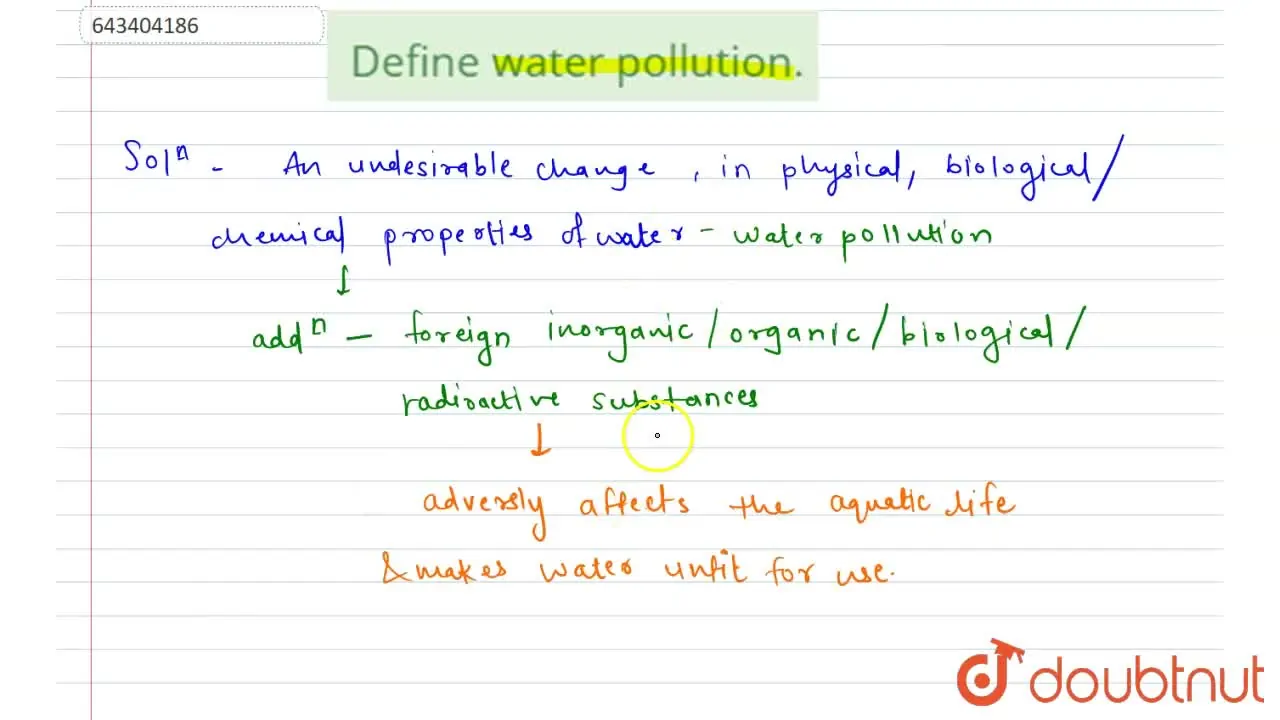 643404186
Define water pollution.
Solⁿ - An undesirable change, in physical, biological/
chemical properties of water - water pollution
↓
addⁿ - foreign inorganic/organic/biological/
radioactive substances
↓
adversly affects the aquatic life
& makes water unfit for use.
doubtnut